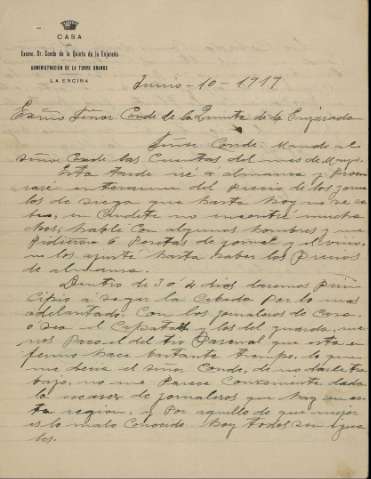 CASA
DEL
Excmo. Sr. Conde de la Quinta de la Enjarada
ADMINISTRACIÓN DE LA TORRE GRANDE
LA ENCINA
Junio - 10 - 1917
Exmo Señor Conde de la Quinta de la Enjarada
Señor Conde: Mando al
señor Conde las Cuentas del mes de Mayo.
Esta tarde iré a almansa y Procu
raré enterarme del precio de los jorna
les de siega que hasta hoy no se sa
bia, en Caudete no encontré muchos
hable con algunos hombres y me
pidieron 6 Pesetas de jornal y el vino,
no los ajusté hasta saber los Precios
de almansa.
Dentro de 3 ó 4 dias daremos prin
cipio a segar la Cebada por lo mas
adelantado. Con los jornaleros de casa
o sea el Capataz y los del guarda, me
nos Paco el del tio Pascual que esta en
fermo hace bastante tiempo, lo que
me dice el señor Conde, de no darle tra
bajo, no me Parece Conveniente dada
la escasez de jornaleros que hay en es
ta region, y Por aquello de que mejor
es lo malo Conocido. Hoy todos son igua
les.